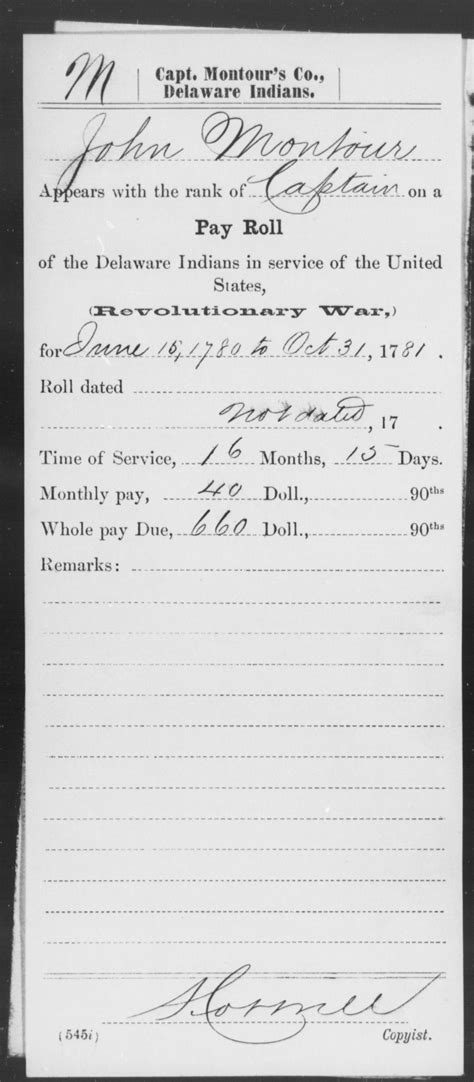 M | Capt. Montour's Co., |
Delaware Indians.
John Montour
Appears with the rank of Captain on a
Pay Roll
of the Delaware Indians in service of the United
States,
(Revolutionary War,)
for June 15, 1780 to Oct 31, 1781.
Roll dated
not dated, 17 .
Time of Service, 16 Months, 15 Days.
Monthly pay, 40 Doll., 90ths
Whole pay Due, 660 Doll., 90ths
Remarks:
(545i) Copyist.